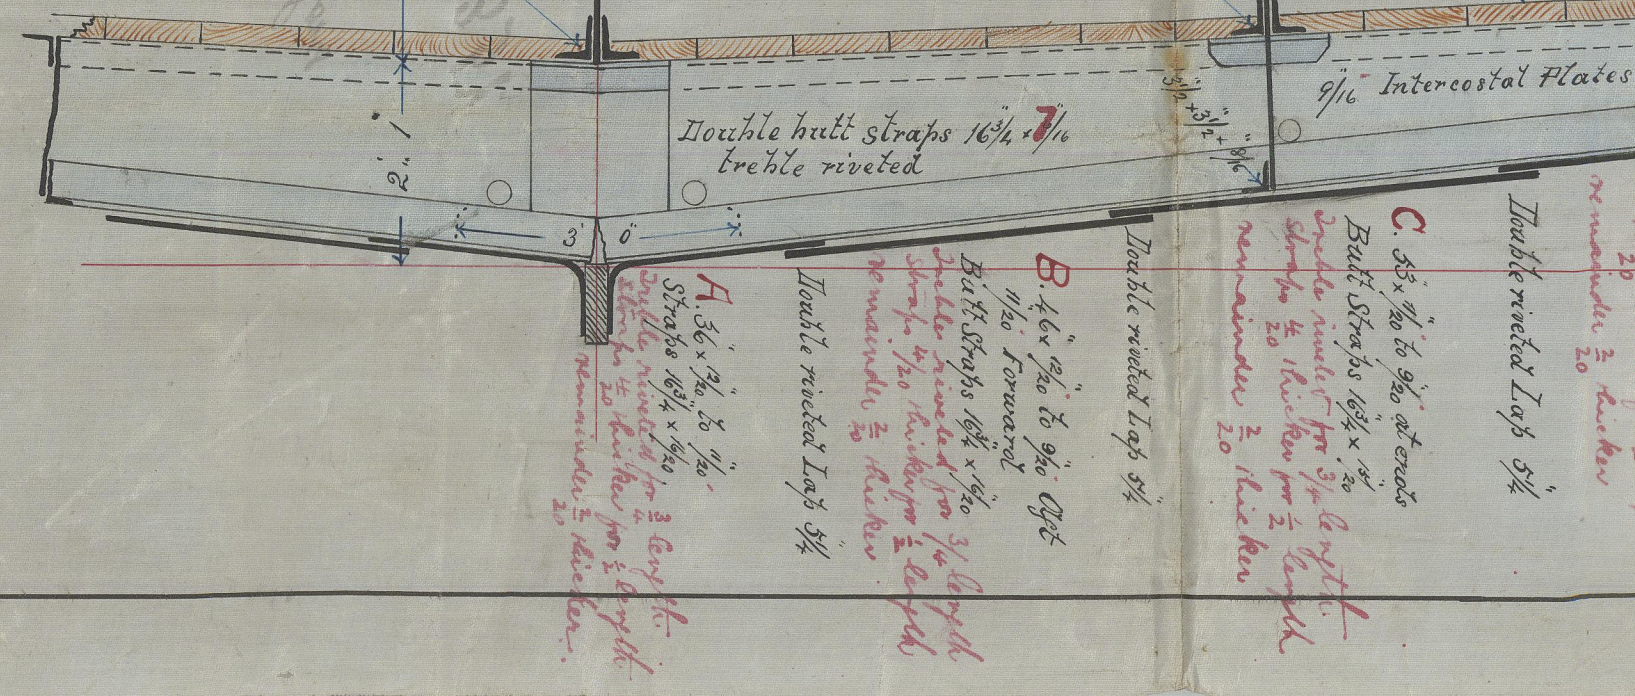 2' 1"
Double butt straps 16 3/4" × 7/16
treble riveted
3 1/2" + 3 1/2" + 8/16"
9/16" Intercostal Plates
3' 0"
A. 36" × 12/20" to 11/20"
Straps 16 3/4" × 16/20
Treble riveted for 3/4 length
straps 4/20 thicker for 1/2 length
remainder 2/20 thicker.
Double riveted Lap 5 1/4"
B. 46" × 12/20" to 9/20" Aft
11/20" Forward
Butt Straps 16 3/4" × 16/20"
Treble riveted for 3/4 length
straps 4/20 thicker for 1/2 length
remainder 2/20 thicker
Double riveted Lap 5 1/4"
C. 53" × 11/20" to 9/20" at ends
Butt Straps 16 3/4" × 15/20"
Treble riveted for 3/4 length.
straps 4/20 thicker for 1/2 length
remainder 2/20 thicker
Double riveted Lap 5 1/4"
20
remainder 2/20 thicker